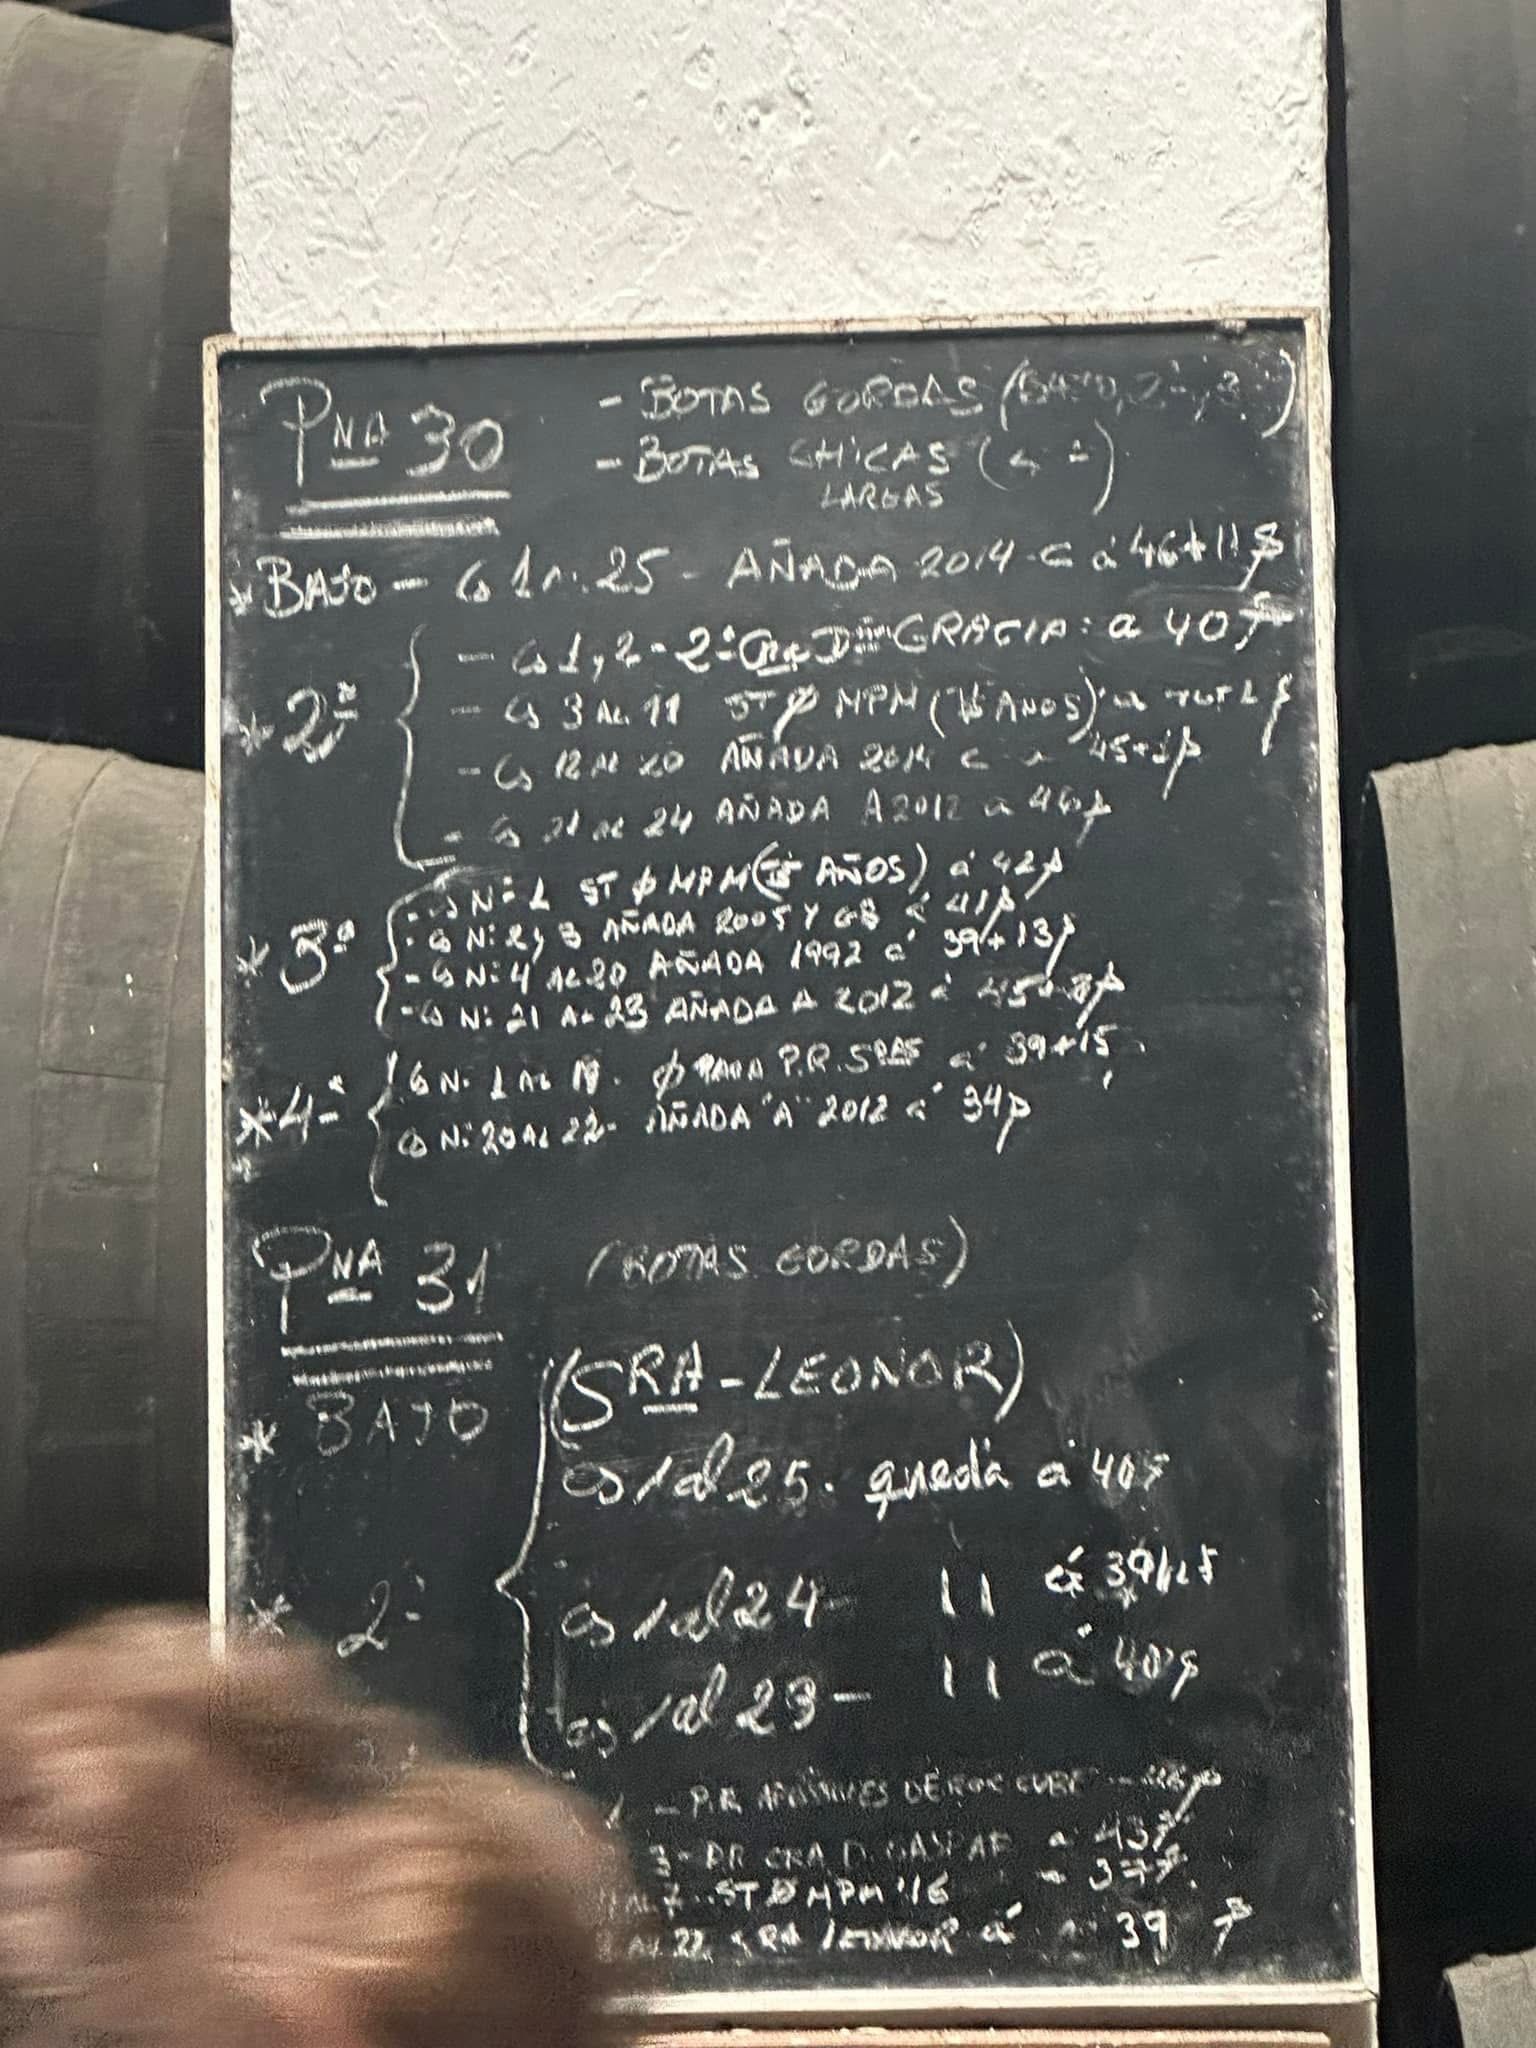 PNA 30
- BOTAS GORDAS (BAJO, 2ª y 3ª)
- BOTAS CHICAS (4ª)
LARGAS
* BAJO - Cs 1 AL 25 - AÑADA 2014-C á 46+11 p
* 2ª
- Cs 1 y 2 - 2ª Cra Dª GRACIA: a 40 p
- Cs 3 AL 11 ST Ø MPM (15 AÑOS) a
- Cs 12 AL 20 AÑADA 2014 C a 45+1p
- Cs 21 AL 24 AÑADA A 2012 a 46p
* 3ª
- Cs Nº 1 ST Ø MPM (15 AÑOS) á 42p
- Cs Nº 2 y 3 AÑADA 2005 Y á 41p
- Cs Nº 4 AL 20 AÑADA 1992 á 39+13p
- Cs Nº 21 AL 23 AÑADA A 2012 á
* 4ª
Cs Nº 1 AL 19. Ø PARA P.R. SRAS á 39+15
Cs Nº 20 AL 22- AÑADA "A" 2012 á 34p
PNA 31 (BOTAS GORDAS)
* BAJO
(SRA - LEONOR)
Cs 1 al 25. queda á 40p
* 2ª
Cs 1 al 24 - 11 á
Cs 1 al 23 - 11 á 40p
- P.R.
3 - CRA D. GASPAR a 43p
AL 7 - ST Ø MPM '16 - 37p.
AL 22 SRA LEONOR á 39 p